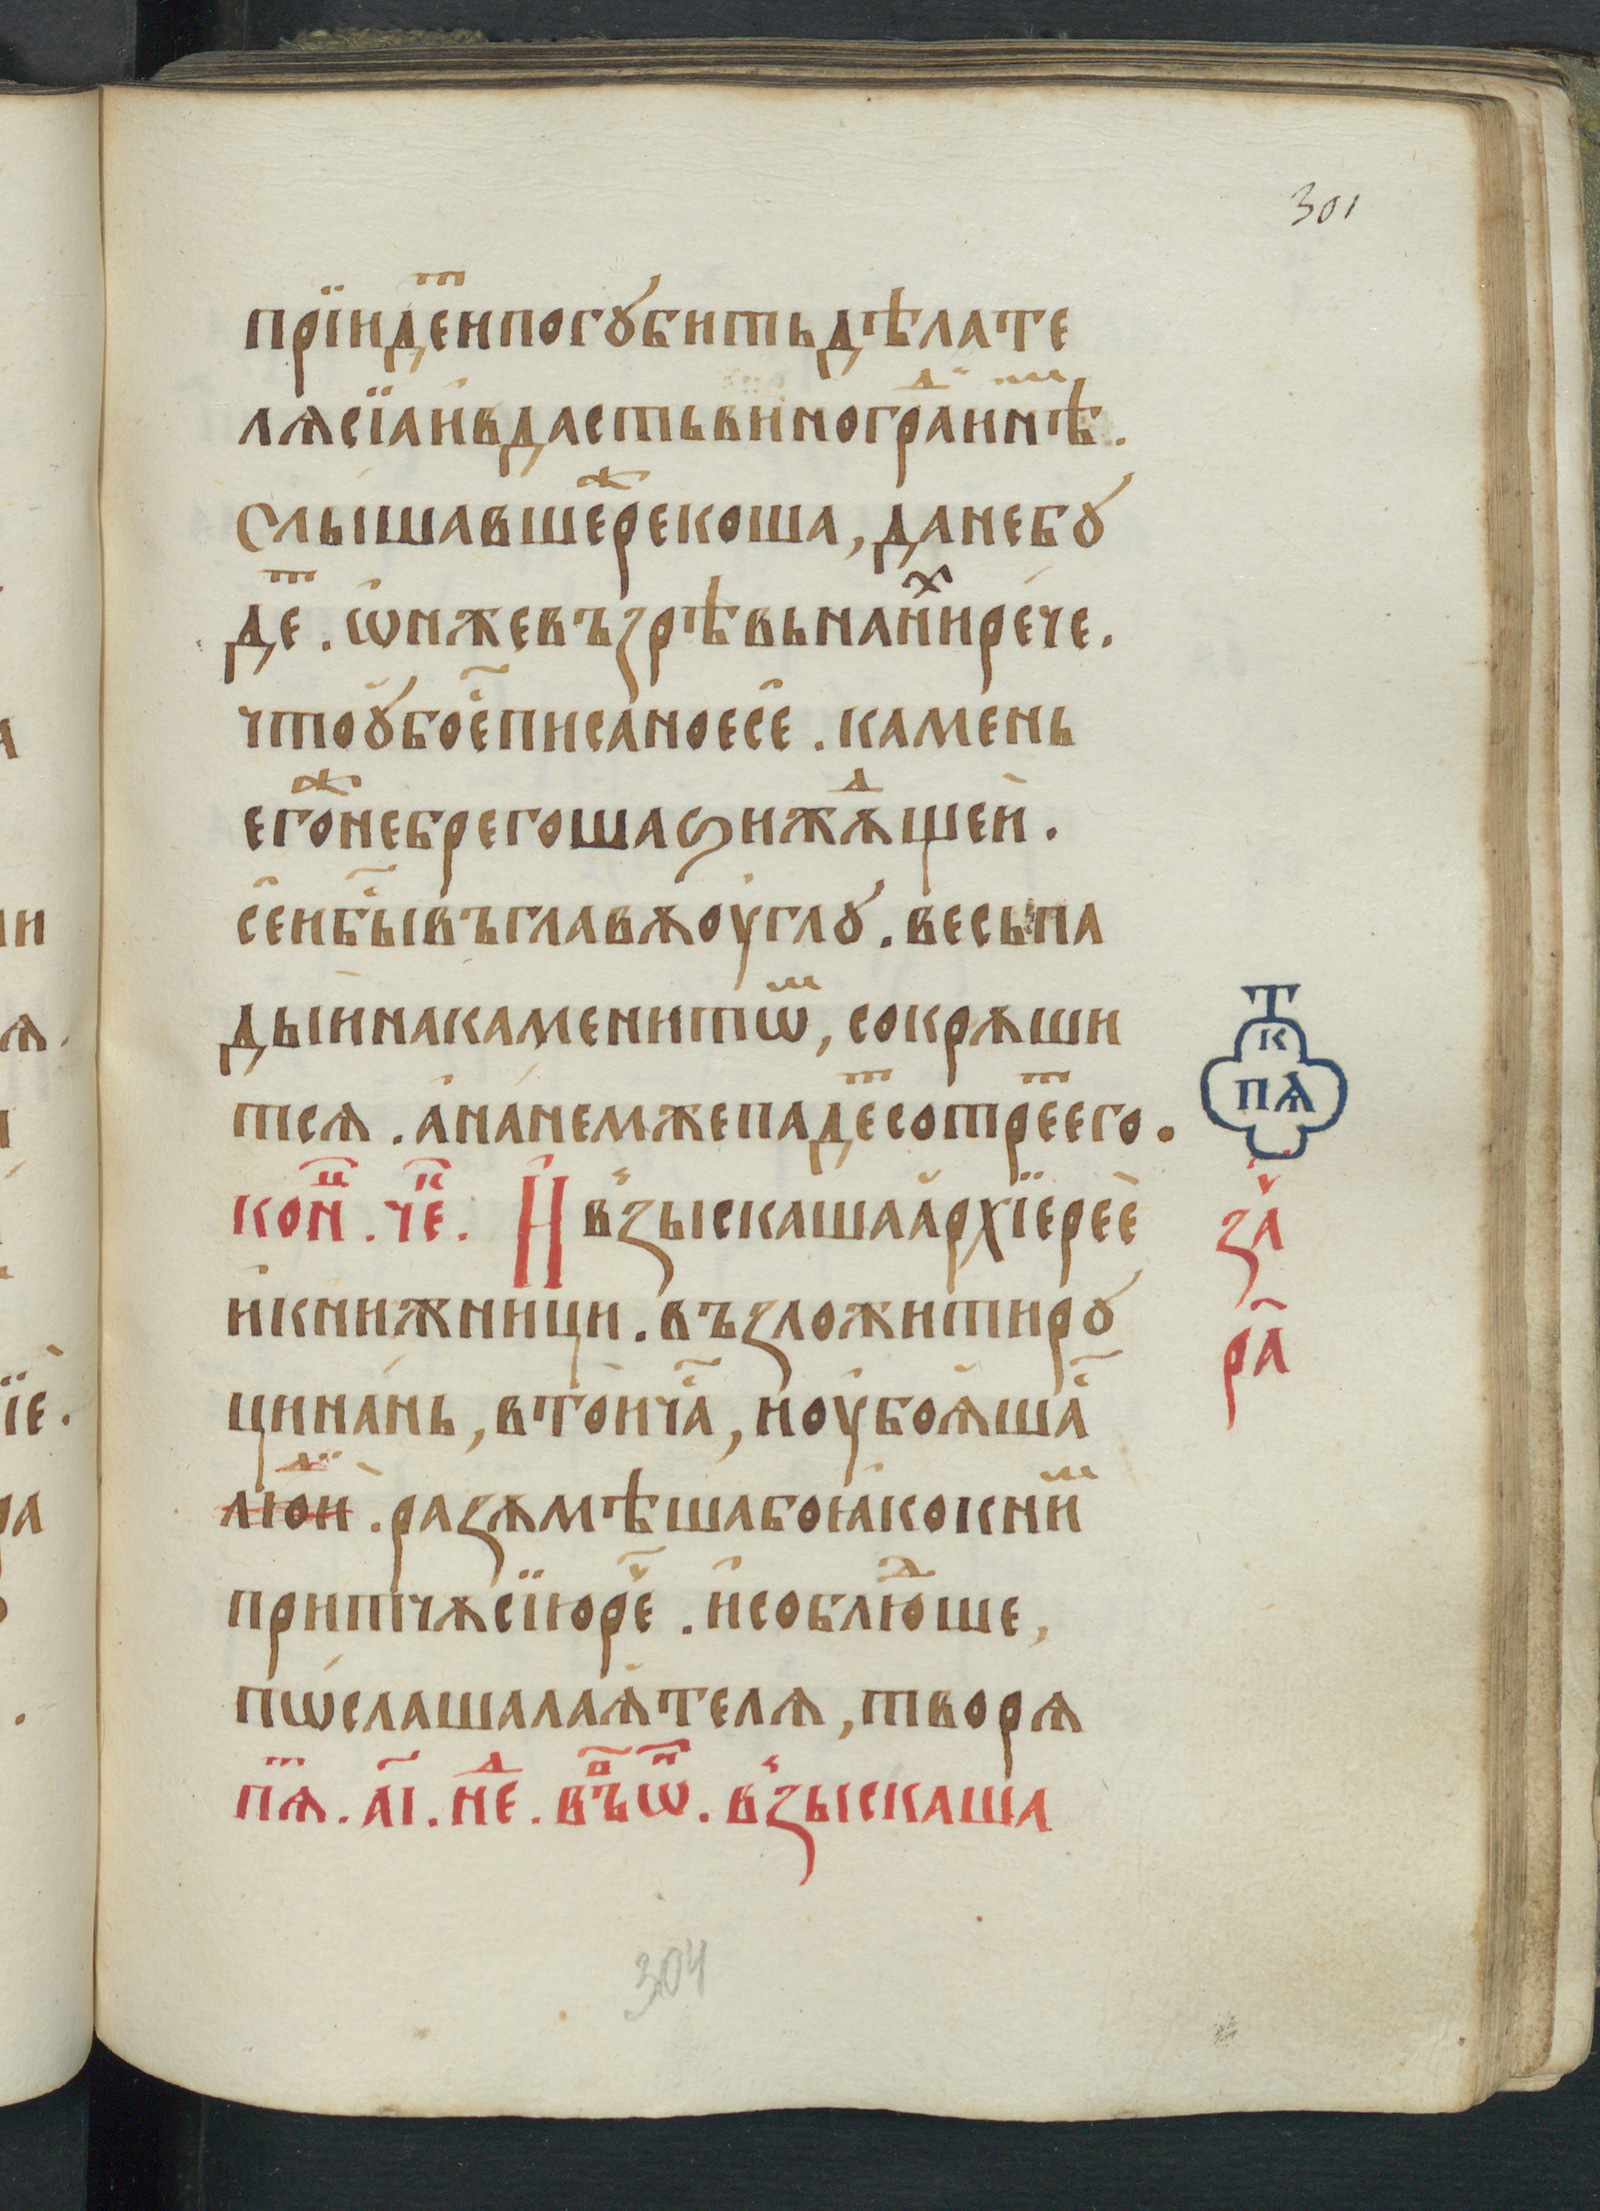 301
прїидеⷮ и погꙋбить дѣлате
лѧ сїа и҆ вдасть виногра инⷨѣⷣ.
слышавшеⷤ рекоша, да не бꙋ
деⷮ. ѡ҆н же въꙁрѣвь на ниⷯ и рече.
что ꙋ҆боеⷭ҇ писаное се. камень
егоⷤ небрегоша ꙅижѫⷣщеи.
сеи быⷭ҇ въ главѫ оуглꙋ. весь па
дыи на камени тѡⷨ, сокрѫши
тсѧ. а на нем же падеⷮ сотреⷮ его.
конⷰ҇. чеⷦ҇. И вꙁ̾ыскаша а҆рхїерее
и книжници. въꙁложити рꙋ
ци нань, в тои чаⷭ҇, и оубоꙗшаⷭ҇
люⷣи. раꙁѫмѣша бо ꙗко к ниⷨ
притчѫ сїю реⷱ҇. и соблюⷣше,
пѡслаша лаѧтелѧ, творѧ
пѧⷮ. а҃і. неⷣ. въⷫ҇ ѡⷩ҇. вꙁ̾ыскаша
к
пѧ
ꙁаⷱ
р҃а
304